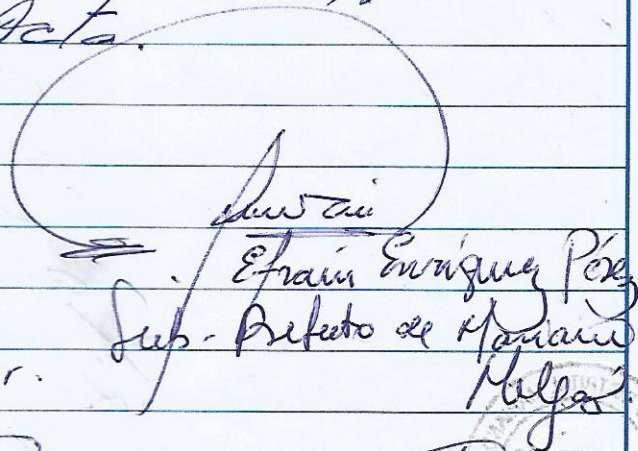 Acta.
Efraín Enríquez Pérez
Sub-Prefecto de Mariano
Melgar
r.